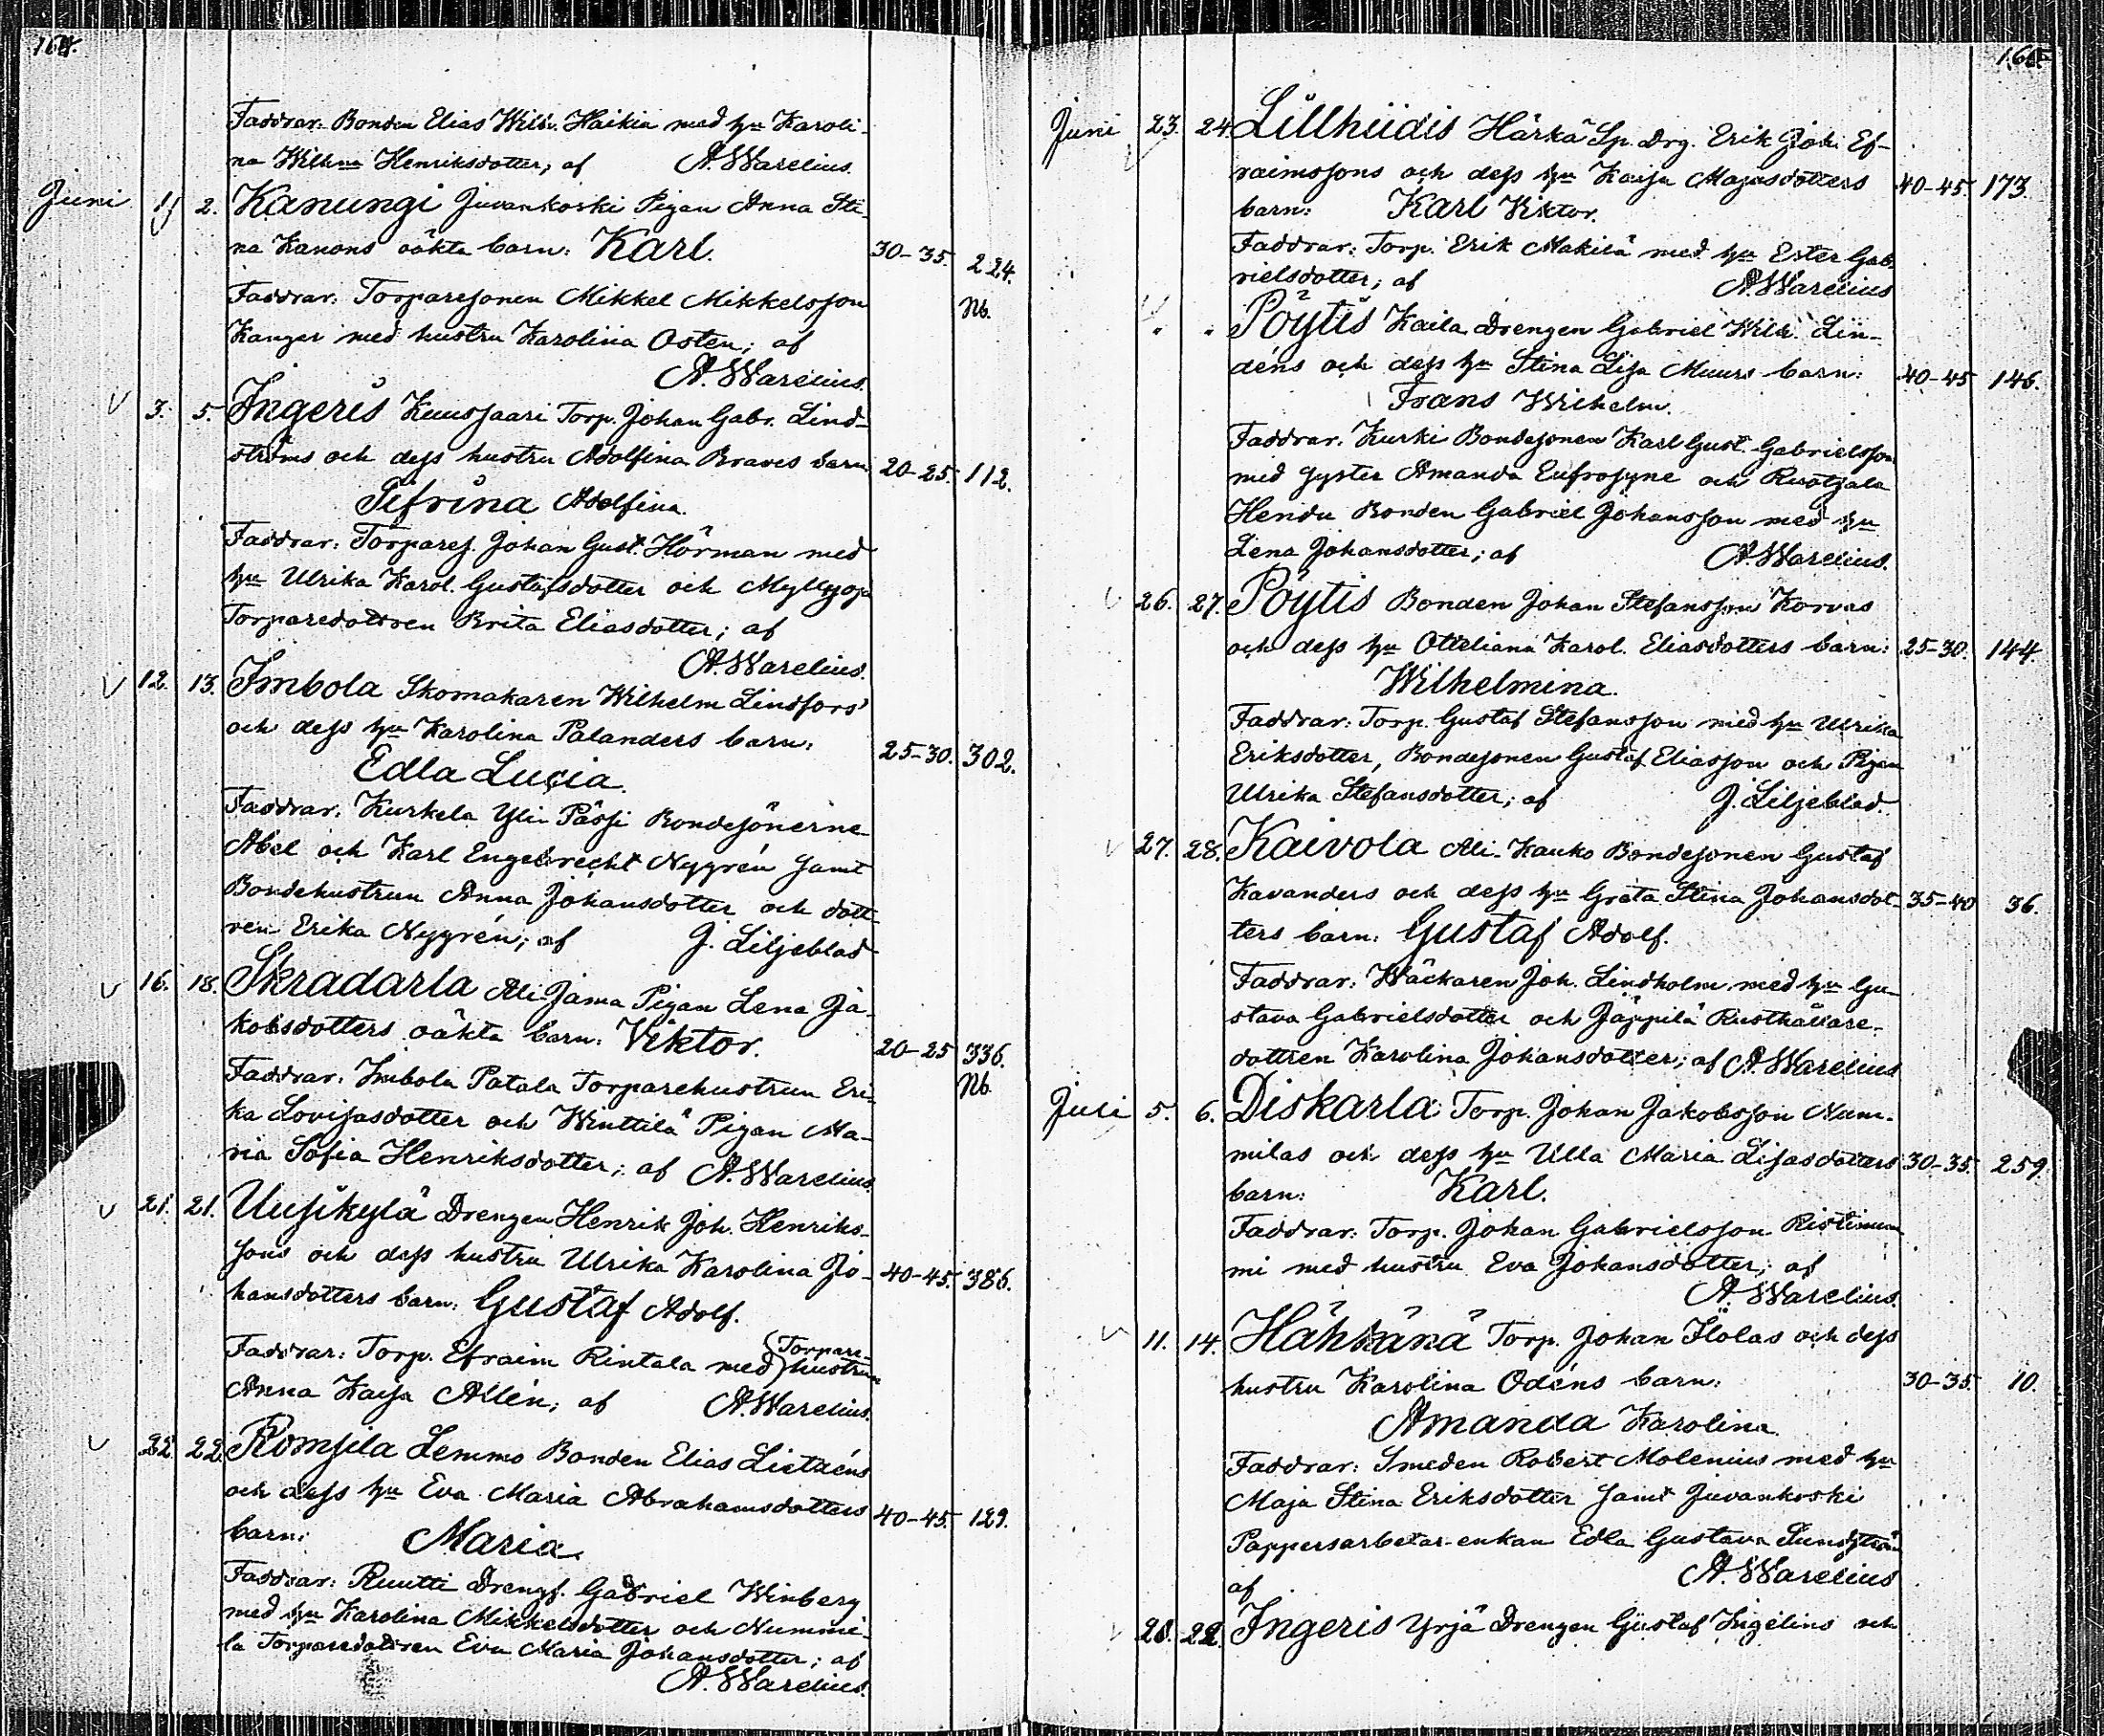 164.
Faddrar: Bonden Elias Wilh. Haikia med hu Karoli-
na Wilhna Henriksdotter; af A. Warelius.
Juni 1 2. Kanungi Juvankoski Pigan Anna Sti-
na Kanons oäkta barn: Karl. 30-35. 224.
Faddrar: Torparesonen Mikkel Mikkelsson Nb.
Kanger med hustru Karolina Osten; af
A. Warelius.
3. 5. Ingeris Kuussaari Torp. Johan Gabr. Lind-
ströms och dess hustru Adolfina Braves barn 20-25. 112.
Sefrina Adolfina.
Faddrar: Torpares. Johan Gust. Hörman med
hu Ulrika Karol. Gustafsdotter och Myllyoja
Torparedottren Brita Eliasdotter; af
A. Warelius.
12. 13. Imbola Skomakaren Wilhelm Lindfors'
och dess hu Karolina Palanders barn: 25-30. 302.
Edla Lucia.
Faddrar: Kurkela Yli Pässi Bondesönerne
Abel och Karl Engelbrecht Nygrén samt
Bondehustrun Anna Johansdotter och dott-
ren Erika Nygrén; af J. Liljeblad
16. 18. Skradarla Ali Jama Pigan Lena Ja-
kobsdotters oäkta barn: Viktor. 20-25 336.
Faddrar: Imbola Patala Torparehustrun Eri- Nb.
ka Lovisasdotter och Winttilä Pigan Ma-
ria Sofia Henriksdotter; af A. Warelius.
21. 21. Uusikylä Drengen Henrik Joh. Henriks-
sons och dess hustru Ulrika Karolina Jo- 40-45. 386.
hansdotters barn: Gustaf Adolf.
Faddrar: Torp. Efraim Rintala med (Torpare-
hustrun
Anna Kajsa Allén; af A. Warelius.
22. 22. Romsila Lemmo Bonden Elias Lietzéns
och dess hu Eva Maria Abrahamsdotters 40-45. 129.
barn: Maria.
Faddrar: Ruutti Drengs. Gabriel Winberg
med hu Karolina Mikkelsdotter och Nummi-
la Torparedottren Eva Maria Johansdotter; af
A. Warelius.
165.
Juni 23. 24. Lillhiidis Härkä Sp. Drg. Erik Joh. Ef-
raimssons och dess hu Kaisa Majasdotters 40-45. 173.
barn: Karl Viktor.
Faddrar: Torp. Erik Makilä med hu Ester Gab-
rielsdotter; af A. Warelius
" " Pöytis Kaila Drengen Gabriel Wilh. Lin-
déns och dess hu Stina Lisa Muurs barn: 40-45 146.
Frans Wilhelm.
Faddrar: Kurki Bondesonen Karl Gust. Gabrielsson
med syster Amanda Eufrosyne och Ruotsala
Hendu Bonden Gabriel Johansson med hu
Lena Johansdotter; af A. Warelius.
26. 27. Pöytis Bonden Johan Stefansson Korvas
och dess hu Otteliana Karol. Eliasdotters barn: 25-30. 144.
Wilhelmina.
Faddrar: Torp. Gustaf Stefansson med hu Ulrika
Eriksdotter, Bondesonen Gustaf Eliasson och Pigan
Ulrika Stefansdotter; af J. Liljeblad.
27. 28. Kaivola Ali-Kauko Bondesonen Gustaf
Kavanders och dess hu Greta Stina Johansdot- 35-40 36.
ters barn: Gustaf Adolf.
Faddrar: Wäckaren Joh. Lindholm med hu Gu-
stava Gabrielsdotter och Jäppilä Rusthållare-
dottren Karolina Johansdotter; af A. Warelius
Juli 5. 6. Diskarla Torp. Johan Jakobsson Num-
milas och dess hu Ulla Maria Lisasdotters 30-35. 259.
barn: Karl.
Faddrar: Torp. Johan Gabrielsson Ristinum-
mi med hustru Eva Johansdotter; af
A. Warelius.
11. 14. Hähkänä Torp. Johan Ilolas och dess
hustru Karolina Odéns barn: 30-35. 10.
Amanda Karolina.
Faddrar: Smeden Robert Molenius med hu
Maja Stina Eriksdotter samt Juvankoski
Pappersarbetar-enkan Edla Gustava Sundström
af A. Warelius
21. 22. Ingeris Yrjä Drengen Gustaf Ingelins och